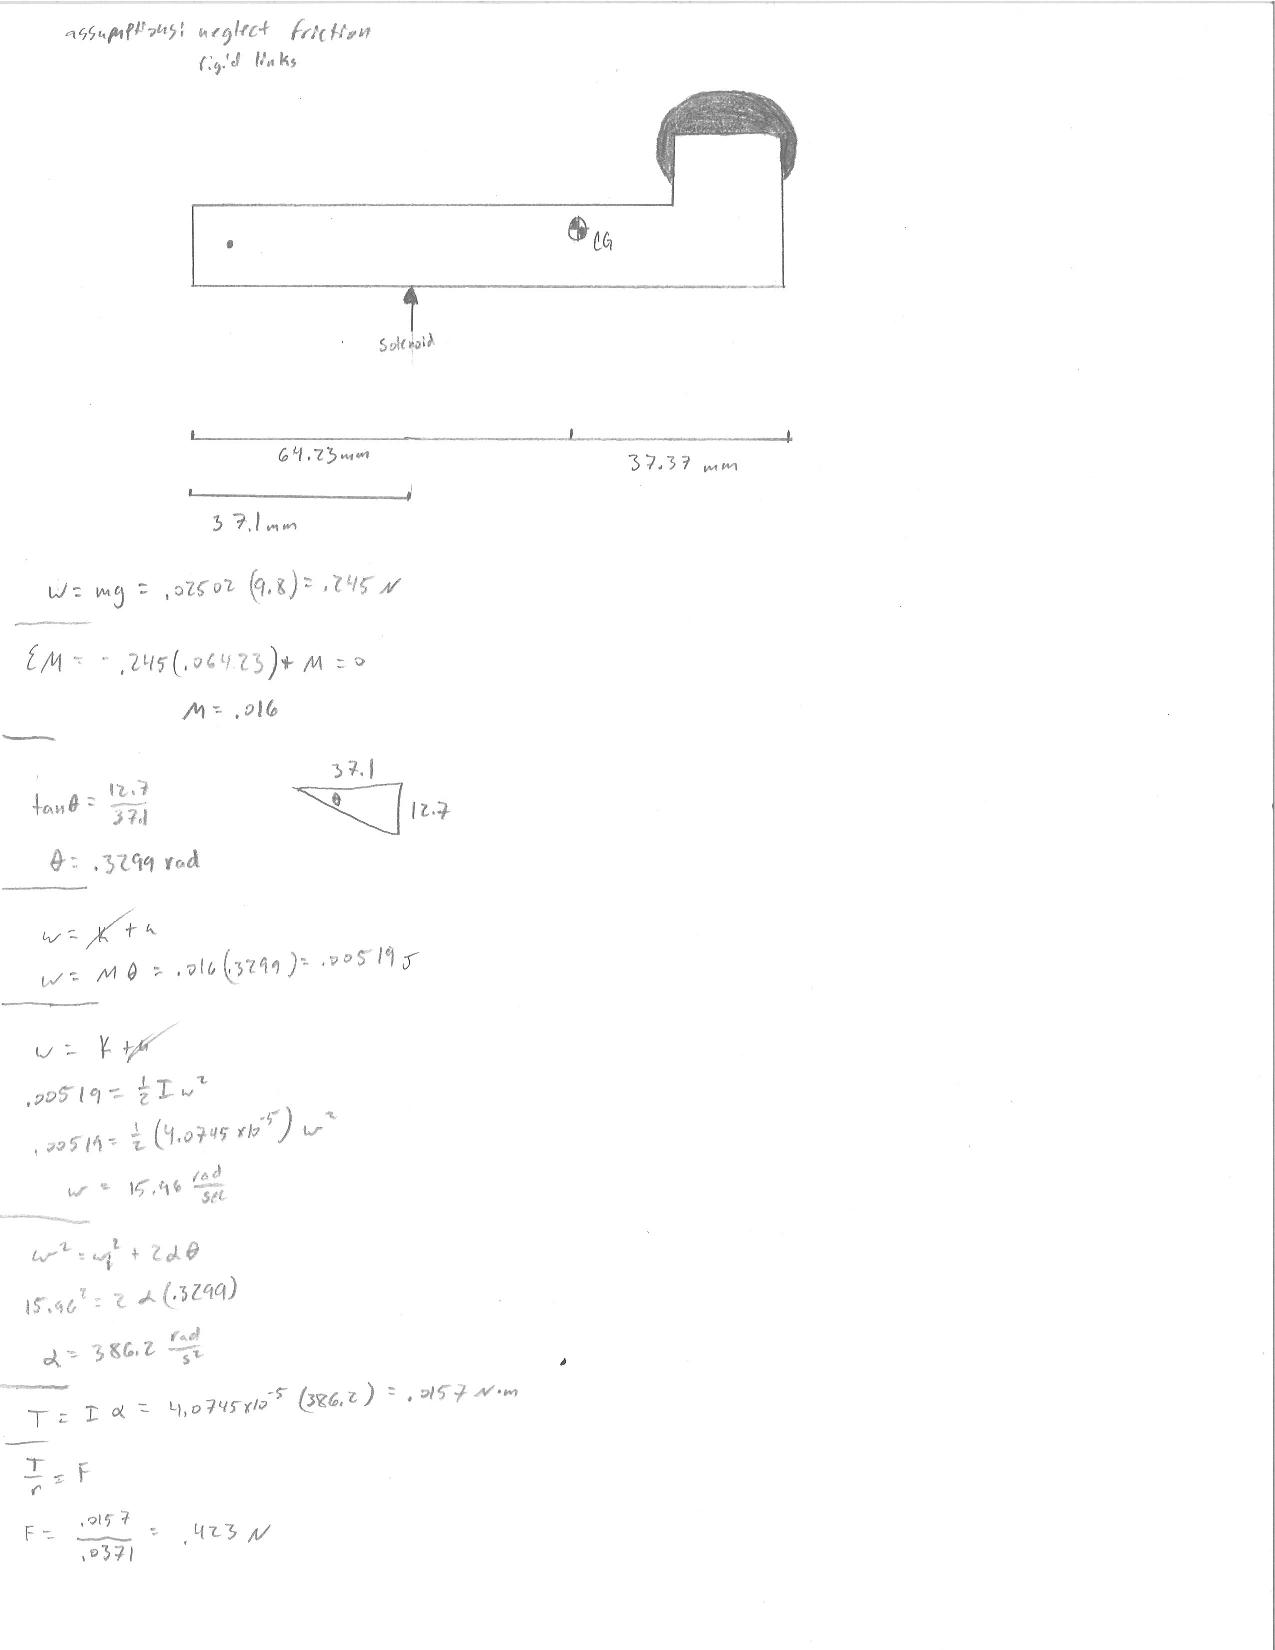 assumptions: neglect friction
rigid links
CG
Solenoid
64.23mm
37.37 mm
37.1mm
W = mg = .02502 (9.8) = .245 N
ΣM = -.245(.06423) + M = 0
M = .016
37.1
tanθ = 12.7/37.1
θ
12.7
θ = .3299 rad
w = K + u
w = Mθ = .016(.3299) = .00519 J
w = K + u
.00519 = 1/2 I w²
.00519 = 1/2 (4.0745 x10⁻⁵) w²
w = 15.96 rad/sec
w² = w₁² + 2αθ
15.96² = 2 α(.3299)
α = 386.2 rad/s²
T = I α = 4.0745x10⁻⁵ (386.2) = .0157 N·m
T/r = F
F = .0157/.0371 = .423 N